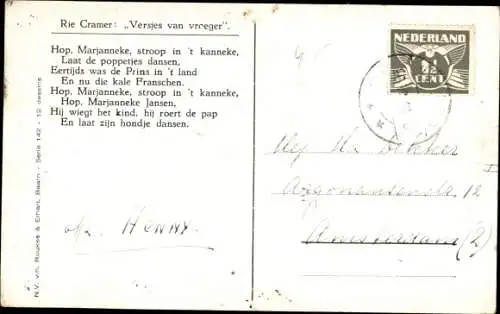 Rie Cramer: „Versjes van vroeger".
Hop, Marjanneke, stroop in 't kanneke,
Laat de poppetjes dansen,
Eertijds was de Prins in 't land
En nu die kale Franschen.
Hop, Marjanneke, stroop in 't kanneke,
Hop, Marjanneke Jansen,
Hij wiegt het kind, hij roert de pap
En laat zijn hondje dansen.
N.V. v.h. Roukes & Erhart, Baarn - Serie 142 - 12 dessins
afz. HENNY.
NEDERLAND
1½
CENT
Mej. Dekker
12
Amsterdam (Z)